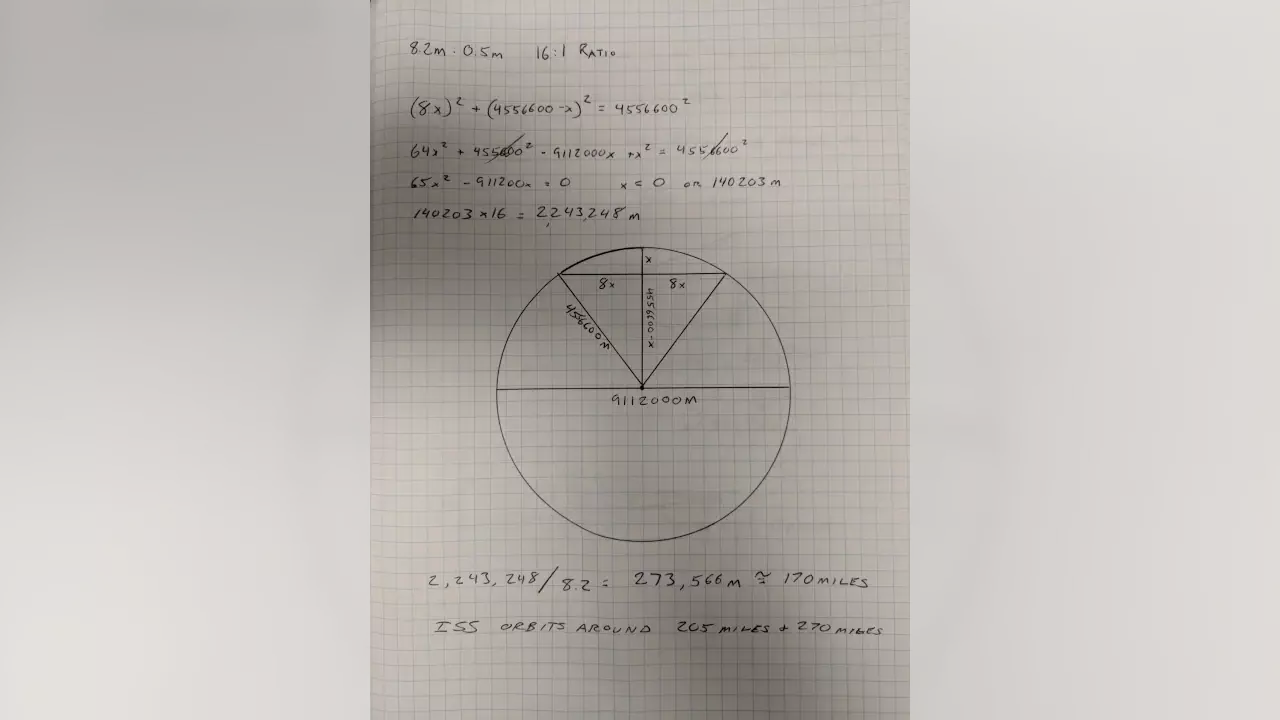 8.2m : 0.5m 16:1 RATIO
(8x)² + (4556600-x)² = 4556600²
64x² + 455600² - 9112000x + x² = 4556600²
65x² - 911200x = 0 x = 0 or 140203 m
140203 x 16 = 2,243,248 m
x
8x 8x
4556600-x
4556600 m
9112000M
2,243,248/8.2 = 273,566 m ≅ 170 MILES
ISS ORBITS AROUND 205 MILES + 270 MILES